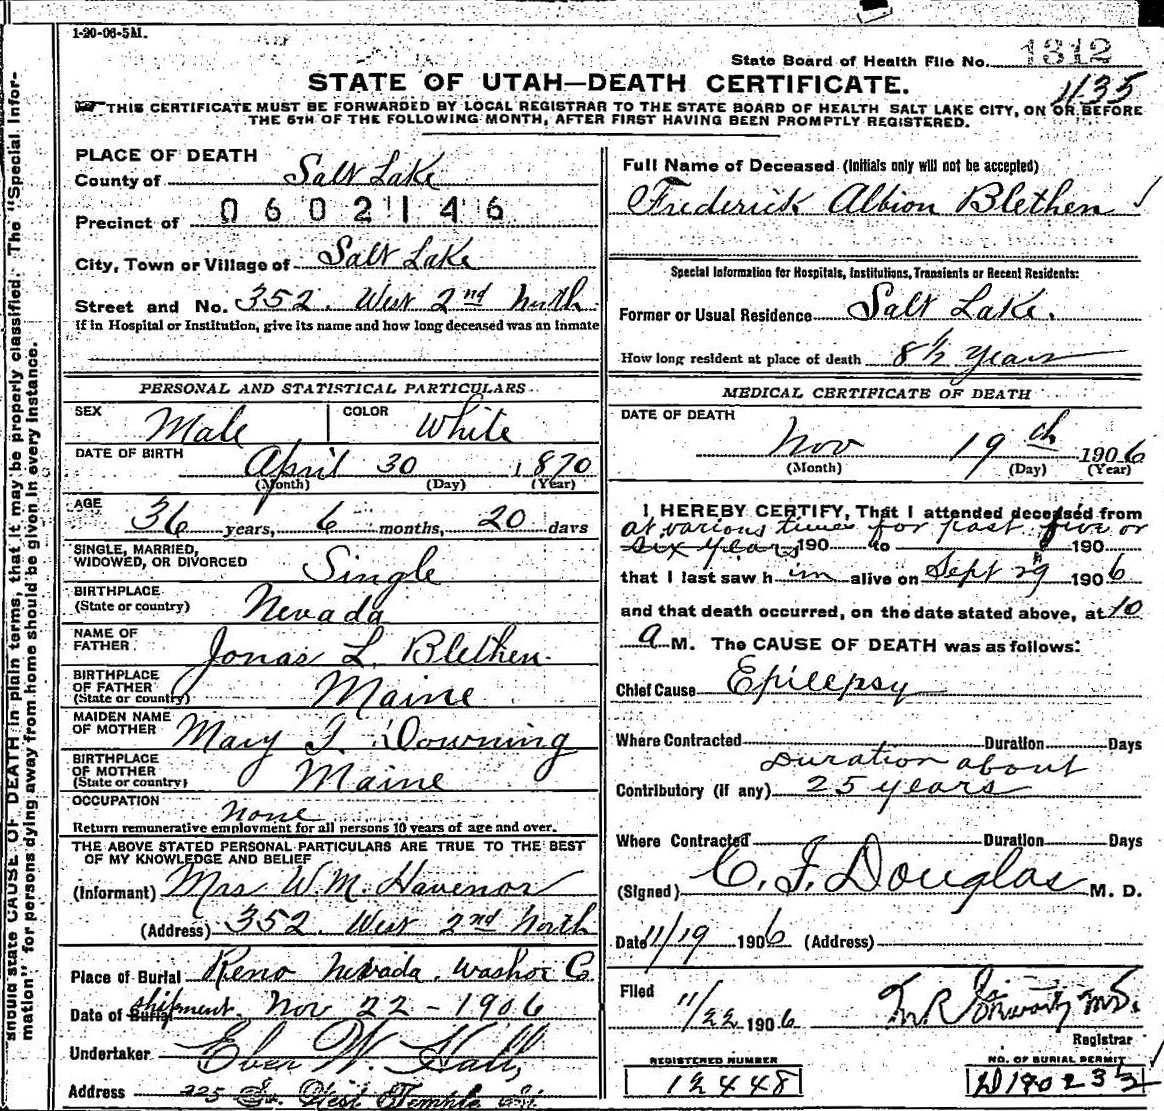 1-20-06-5M.
State Board of Health File No. 1312
1135
STATE OF UTAH—DEATH CERTIFICATE.
THIS CERTIFICATE MUST BE FORWARDED BY LOCAL REGISTRAR TO THE STATE BOARD OF HEALTH SALT LAKE CITY, ON OR BEFORE
THE 5TH OF THE FOLLOWING MONTH, AFTER FIRST HAVING BEEN PROMPTLY REGISTERED.
should state CAUSE OF DEATH in plain terms, that it may be properly classified. The "Special Infor-
mation" for persons dying away from home should be given in every instance.
PLACE OF DEATH
County of Salt Lake
Precinct of 0602146
City, Town or Village of Salt Lake
Street and No. 352 West 2nd North
If in Hospital or Institution, give its name and how long deceased was an inmate
PERSONAL AND STATISTICAL PARTICULARS
SEX Male COLOR White
DATE OF BIRTH April 30 1870
(Month) (Day) (Year)
AGE 36 years, 6 months, 20 days
SINGLE, MARRIED,
WIDOWED, OR DIVORCED Single
BIRTHPLACE
(State or country) Nevada
NAME OF
FATHER Jonas L. Blethen
BIRTHPLACE
OF FATHER
(State or country) Maine
MAIDEN NAME
OF MOTHER Mary J. Downing
BIRTHPLACE
OF MOTHER
(State or country) Maine
OCCUPATION none
Return remunerative employment for all persons 10 years of age and over.
THE ABOVE STATED PERSONAL PARTICULARS ARE TRUE TO THE BEST
OF MY KNOWLEDGE AND BELIEF
(Informant) Mrs W.M. Havenor
(Address) 352 West 2nd North
Place of Burial Reno Nevada. Washoe Co.
Date of Burial shipment Nov 22 - 1906
Undertaker Eber W. Hall,
Address 225 So. West Temple St.
Full Name of Deceased (Initials only will not be accepted)
Frederick Albion Blethen
Special Information for Hospitals, Institutions, Transients or Recent Residents:
Former or Usual Residence Salt Lake.
How long resident at place of death 8½ years
MEDICAL CERTIFICATE OF DEATH
DATE OF DEATH
Nov 19th 1906
(Month) (Day) (Year)
I HEREBY CERTIFY, That I attended deceased from
at various times for past five or
six years 190 to 190
that I last saw him alive on Sept 29 1906
and that death occurred, on the date stated above, at 10
a M. The CAUSE OF DEATH was as follows:
Chief Cause Epilepsy
Where Contracted Duration Days
Duration about
Contributory (if any) 25 years
Where Contracted Duration Days
(Signed) C. F. Douglas M. D.
Date 11/19 1906 (Address)
Filed
11/22 1906
Registrar
REGISTERED NUMBER
12448
NO. OF BURIAL PERMIT